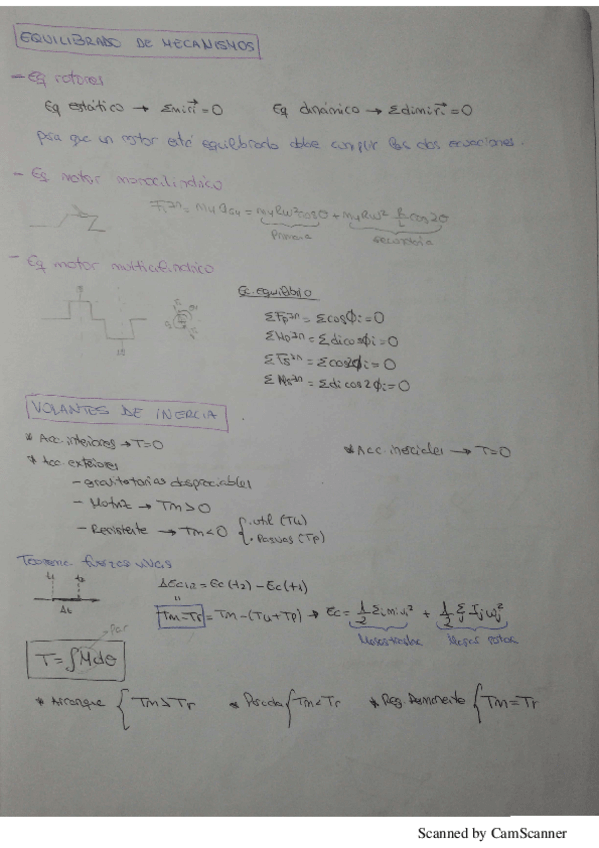 EQUILIBRADO DE MECANISMOS
- Eq rotores
Eq estático → Σmiri = 0   Eq dinámico → Σdimiri = 0
para que un rotor esté equilibrado debe cumplir las dos ecuaciones.
- Eq motor monocilíndrico
= m4 aG4 = m4Rω²cosθ + m4Rω² cos2θ
primaria   secundaria
- Eq motor multicilíndrico
Ec. equilibrio
ΣFpin = Σcosφi = 0
ΣMpin = Σdicosφi = 0
ΣFsin = Σcos2φi = 0
ΣMsin = Σdicos2φi = 0
VOLANTES DE INERCIA
* Acc. interiores → T=0   * Acc. inerciales → T=0
* Acc. exteriores
- gravitatorias despreciables
- Motriz → Tm > 0
- Resistente → Tm < 0 { . util (Tu)
. Pasivas (Tp)
Teorema fuerzas vivas
t1   t2
Δt
ΔEc12 = Ec(t2) - Ec(t1)
Tm-Tr = Tm - (Tu + Tp) → Ec = 1/2 Σi mi vi² + 1/2 Σj Ij ωj²
Masas
Par
T = ∫M dθ
* Arranque { Tm > Tr   * Parada { Tm < Tr   * Reg. Permanente { Tm = Tr
Scanned by CamScanner